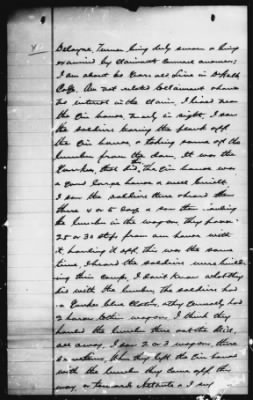 Turner being duly sworn & being
examined by claimant's Counsel answers;
I am about 60 Years old & live in DeKalb
Co Ga. Am not related to Claimant & have
no interest in the claim, I lived near
the Gin house, nearly in sight, I saw
the soldiers tearing the plank off
the Gin house, & taking some of the
lumber from the dam. It was the
Yankees, that did, the Gin house was
a good large house & well built
I saw the soldiers there & heard them
there 4 or 5 days & saw them
the lumber in the wagons they passed
25 or 30 steps from our house with
it hauling it off, this was the same
time, I heard the soldiers were build-
ing their camps, I don't know what they
did with the lumber, The soldiers had
Yankee blue Clothes, & they had
2 horse wagons. I think they
hauled the lumber there out the
all away, I saw 2 or 3 wagons, there
When they left the Gin house
with the lumber they came off this
way, or towards Atlanta & I